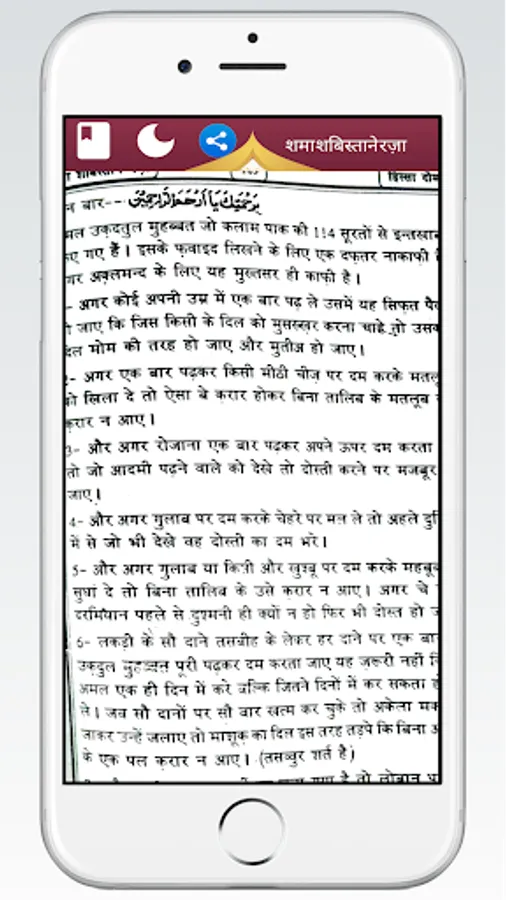 शमाशबिस्तानेरज़ा
हिस्सा दोम
न बार--- بِرَحْمَتِكَ يَا أَرْحَمَ الرَّاحِمِيْنَ
मल उक़दतुल मुहब्बत जो कलाम पाक की 114 सूरतों से इन्तख़ाब
ए गए हैं। इसके फ़वाइद लिखने के लिए एक दफ़तर नाकाफी है
गर अक़्लमन्द के लिए यह मुख़्तसर ही काफ़ी है।
- अगर कोई अपनी उम्र में एक बार पढ़ ले उसमें यह सिफ़त पै
हो जाए कि जिस किसी के दिल को मुसख़्ख़र करना चाहे तो उस
दिल मोम की तरह हो जाए और मुतीअ हो जाए।
2- अगर एक बार पढ़कर किसी मीठी चीज़ पर दम करके मतलू
को खिला दे तो ऐसा बे क़रार होकर बिना तालिब के मतलूब
क़रार न आए।
3- और अगर रोजाना एक बार पढ़कर अपने ऊपर दम करता
तो जो आदमी पढ़ने वाले को देखे तो दोस्ती करने पर मजबूर
जाए।
4- और अगर गुलाब पर दम करके चेहरे पर मल ले तो अहले दुनि
में से जो भी देखे वह दोस्ती का दम भरे।
5- और अगर गुलाब या किसी और खुश्बू पर दम करके महबू
सुघां दे तो बिना तालिब के उसे क़रार न आए। अगर चे
दरमियान पहले से दुश्मनी ही क्यों न हो फिर भी दोस्त हो
6- लकड़ी के सौ दाने तसबीह के लेकर हर दाने पर एक बार
उक़दुल मुहब्बत पूरी पढ़कर दम करता जाए यह ज़रूरी नहीं
अमल एक ही दिन में करे बल्कि जितने दिनों में कर सकता हो
ले। जब सौ दानों पर सौ बार खत्म कर चुके तो अकेला मक
जाकर उन्हें जलाए तो माशूक़ का दिल इस तरह तड़पे कि बिना
के एक पल क़रार न आए। (तसव्वुर शर्त है)
गया है तो लोबान